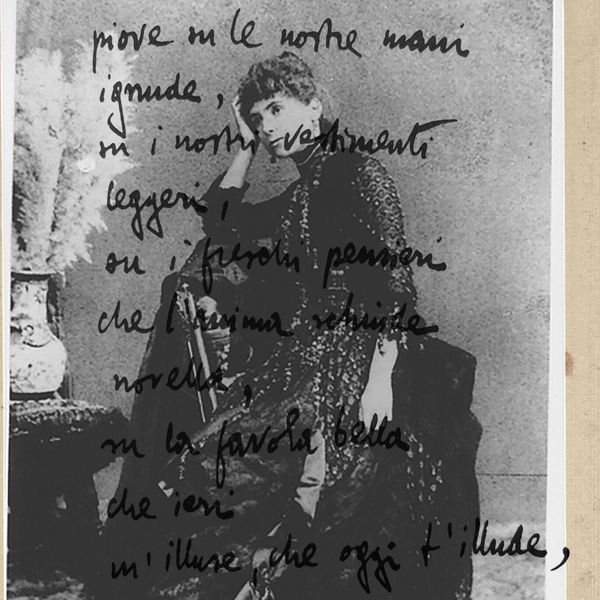 piove su le nostre mani
ignude,
su i nostri vestimenti
leggeri,
su i freschi pensieri
che l'anima schiude
novella,
su la favola bella
che ieri
m'illuse, che oggi t'illude,